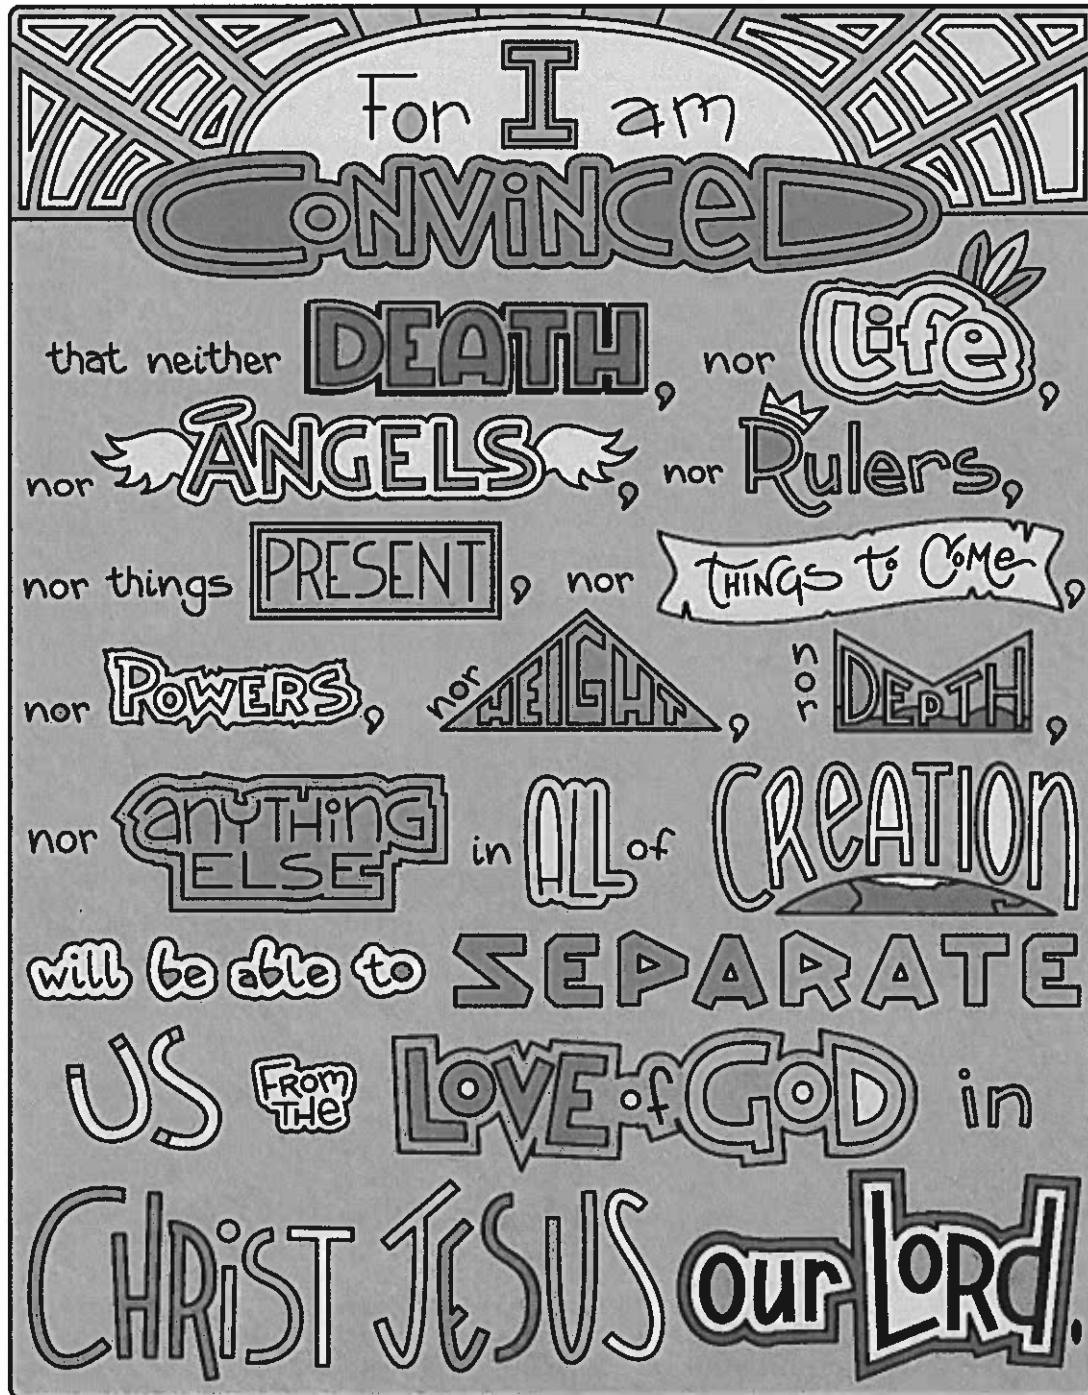 For I am
CONViNCeD
that neither DEATH, nor Life,
nor ANGELS, nor Rulers,
nor things PRESENT, nor THINGS to CoMe,
nor PoWERS, nor HEIGHT, nor DEpTH,
nor anYTHiNG ELSE in ALL of CReATION
will be able to SEPARATE
US FRom THe LOVE of GOD in
CHRiST JESUS our LORd.